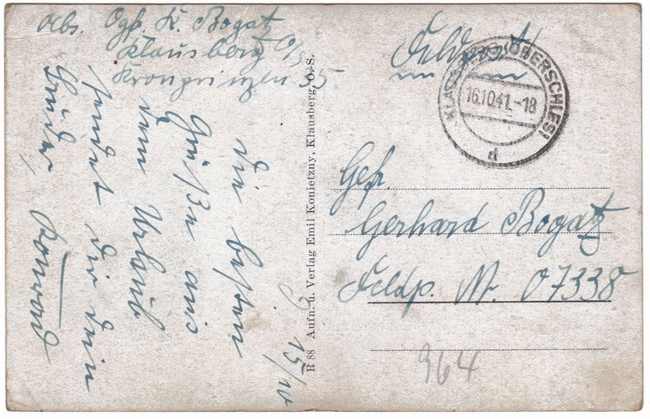 Abs. Ogfr. K. Bogatz
Klausberg O/S
Kronprinzen 55
Feldpost
KLAUSBERG (OBERSCHLES)
16.10.41.-18
d
15/10
Die besten
Grüße aus
dem Urlaub
sendet dir dein
Bruder Konrad
R 88 Aufn. u. Verlag Emil Konietzny, Klausberg, O.-S.
Gefr.
Gerhard Bogatz
Feldp. Nr. 07338
964